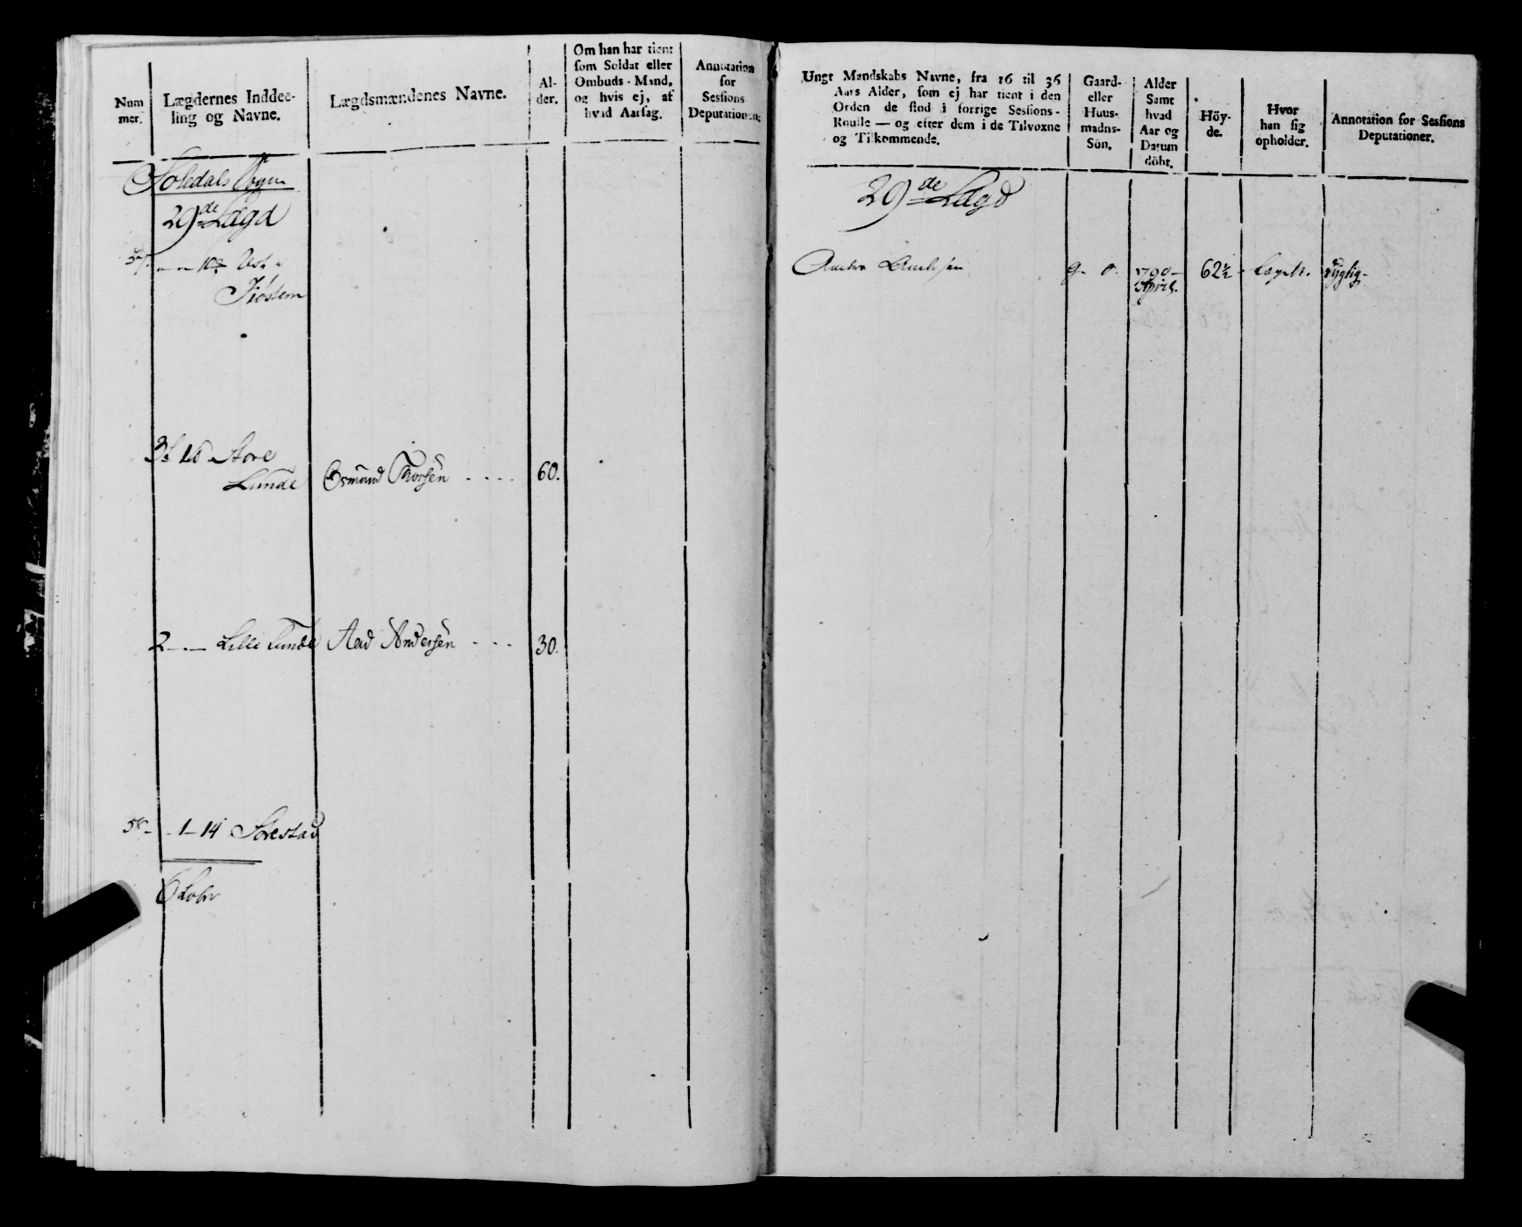 Num
mer.
Lægdernes Inddee-
ling og Navne.
Lægdsmændenes Navne.
Al-
der.
Om han har tient
som Soldat eller
Ombuds-Mand,
og hvis ej, af
hvad Aarsag.
Annotation
for
Sessions
Deputationen.
29de Lægd
Store
Lunde
Osmund Thorsen
60.
2 Lille Lunde
Aad Andersen
30.
1-14 Sørestad
Ungt Mandskabs Navne, fra 16 til 36
Aars Alder, som ej har tient i den
Orden de stod i forrige Sessions-
Roulle — og efter dem i de Tilvoxne
og Tilkommende.
Gaard-
eller
Huus-
mands-
Søn.
Alder
Samt
hvad
Aar og
Datum
döbt.
Höy-
de.
Hvor
han sig
opholder.
Annotation for Sessions
Deputationer.
29de Lægd
1790
April.
62½
dygtig